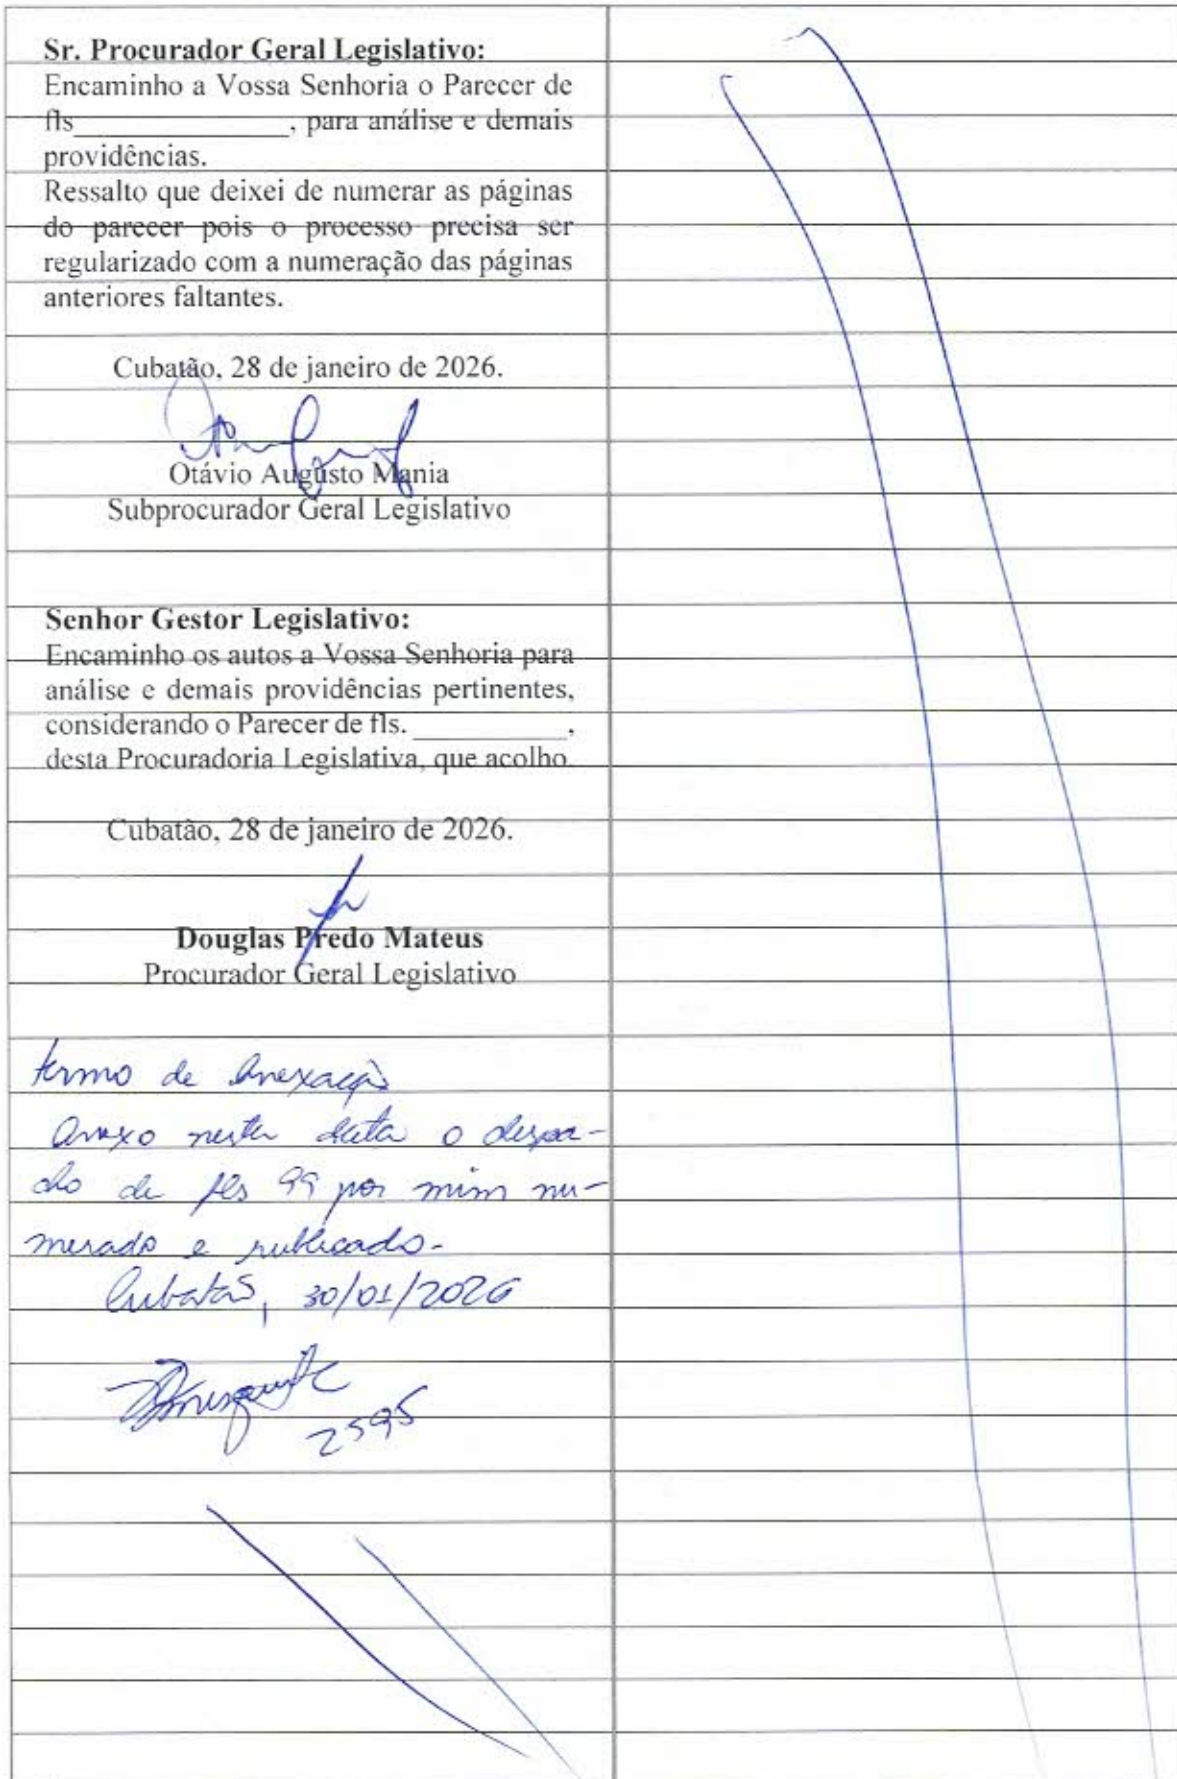 Sr. Procurador Geral Legislativo:
Encaminho a Vossa Senhoria o Parecer de
fls______________, para análise e demais
providências.
Ressalto que deixei de numerar as páginas
do parecer pois o processo precisa ser
regularizado com a numeração das páginas
anteriores faltantes.
Cubatão, 28 de janeiro de 2026.
Otávio Augusto Mania
Subprocurador Geral Legislativo
Senhor Gestor Legislativo:
Encaminho os autos a Vossa Senhoria para
análise e demais providências pertinentes,
considerando o Parecer de fls. __________,
desta Procuradoria Legislativa, que acolho.
Cubatão, 28 de janeiro de 2026.
Douglas Predo Mateus
Procurador Geral Legislativo
termo de Anexação
Anexo nesta data o despa-
cho de fls 99 por mim nu-
merado e rubricado-
Cubatão, 30/01/2026
2595